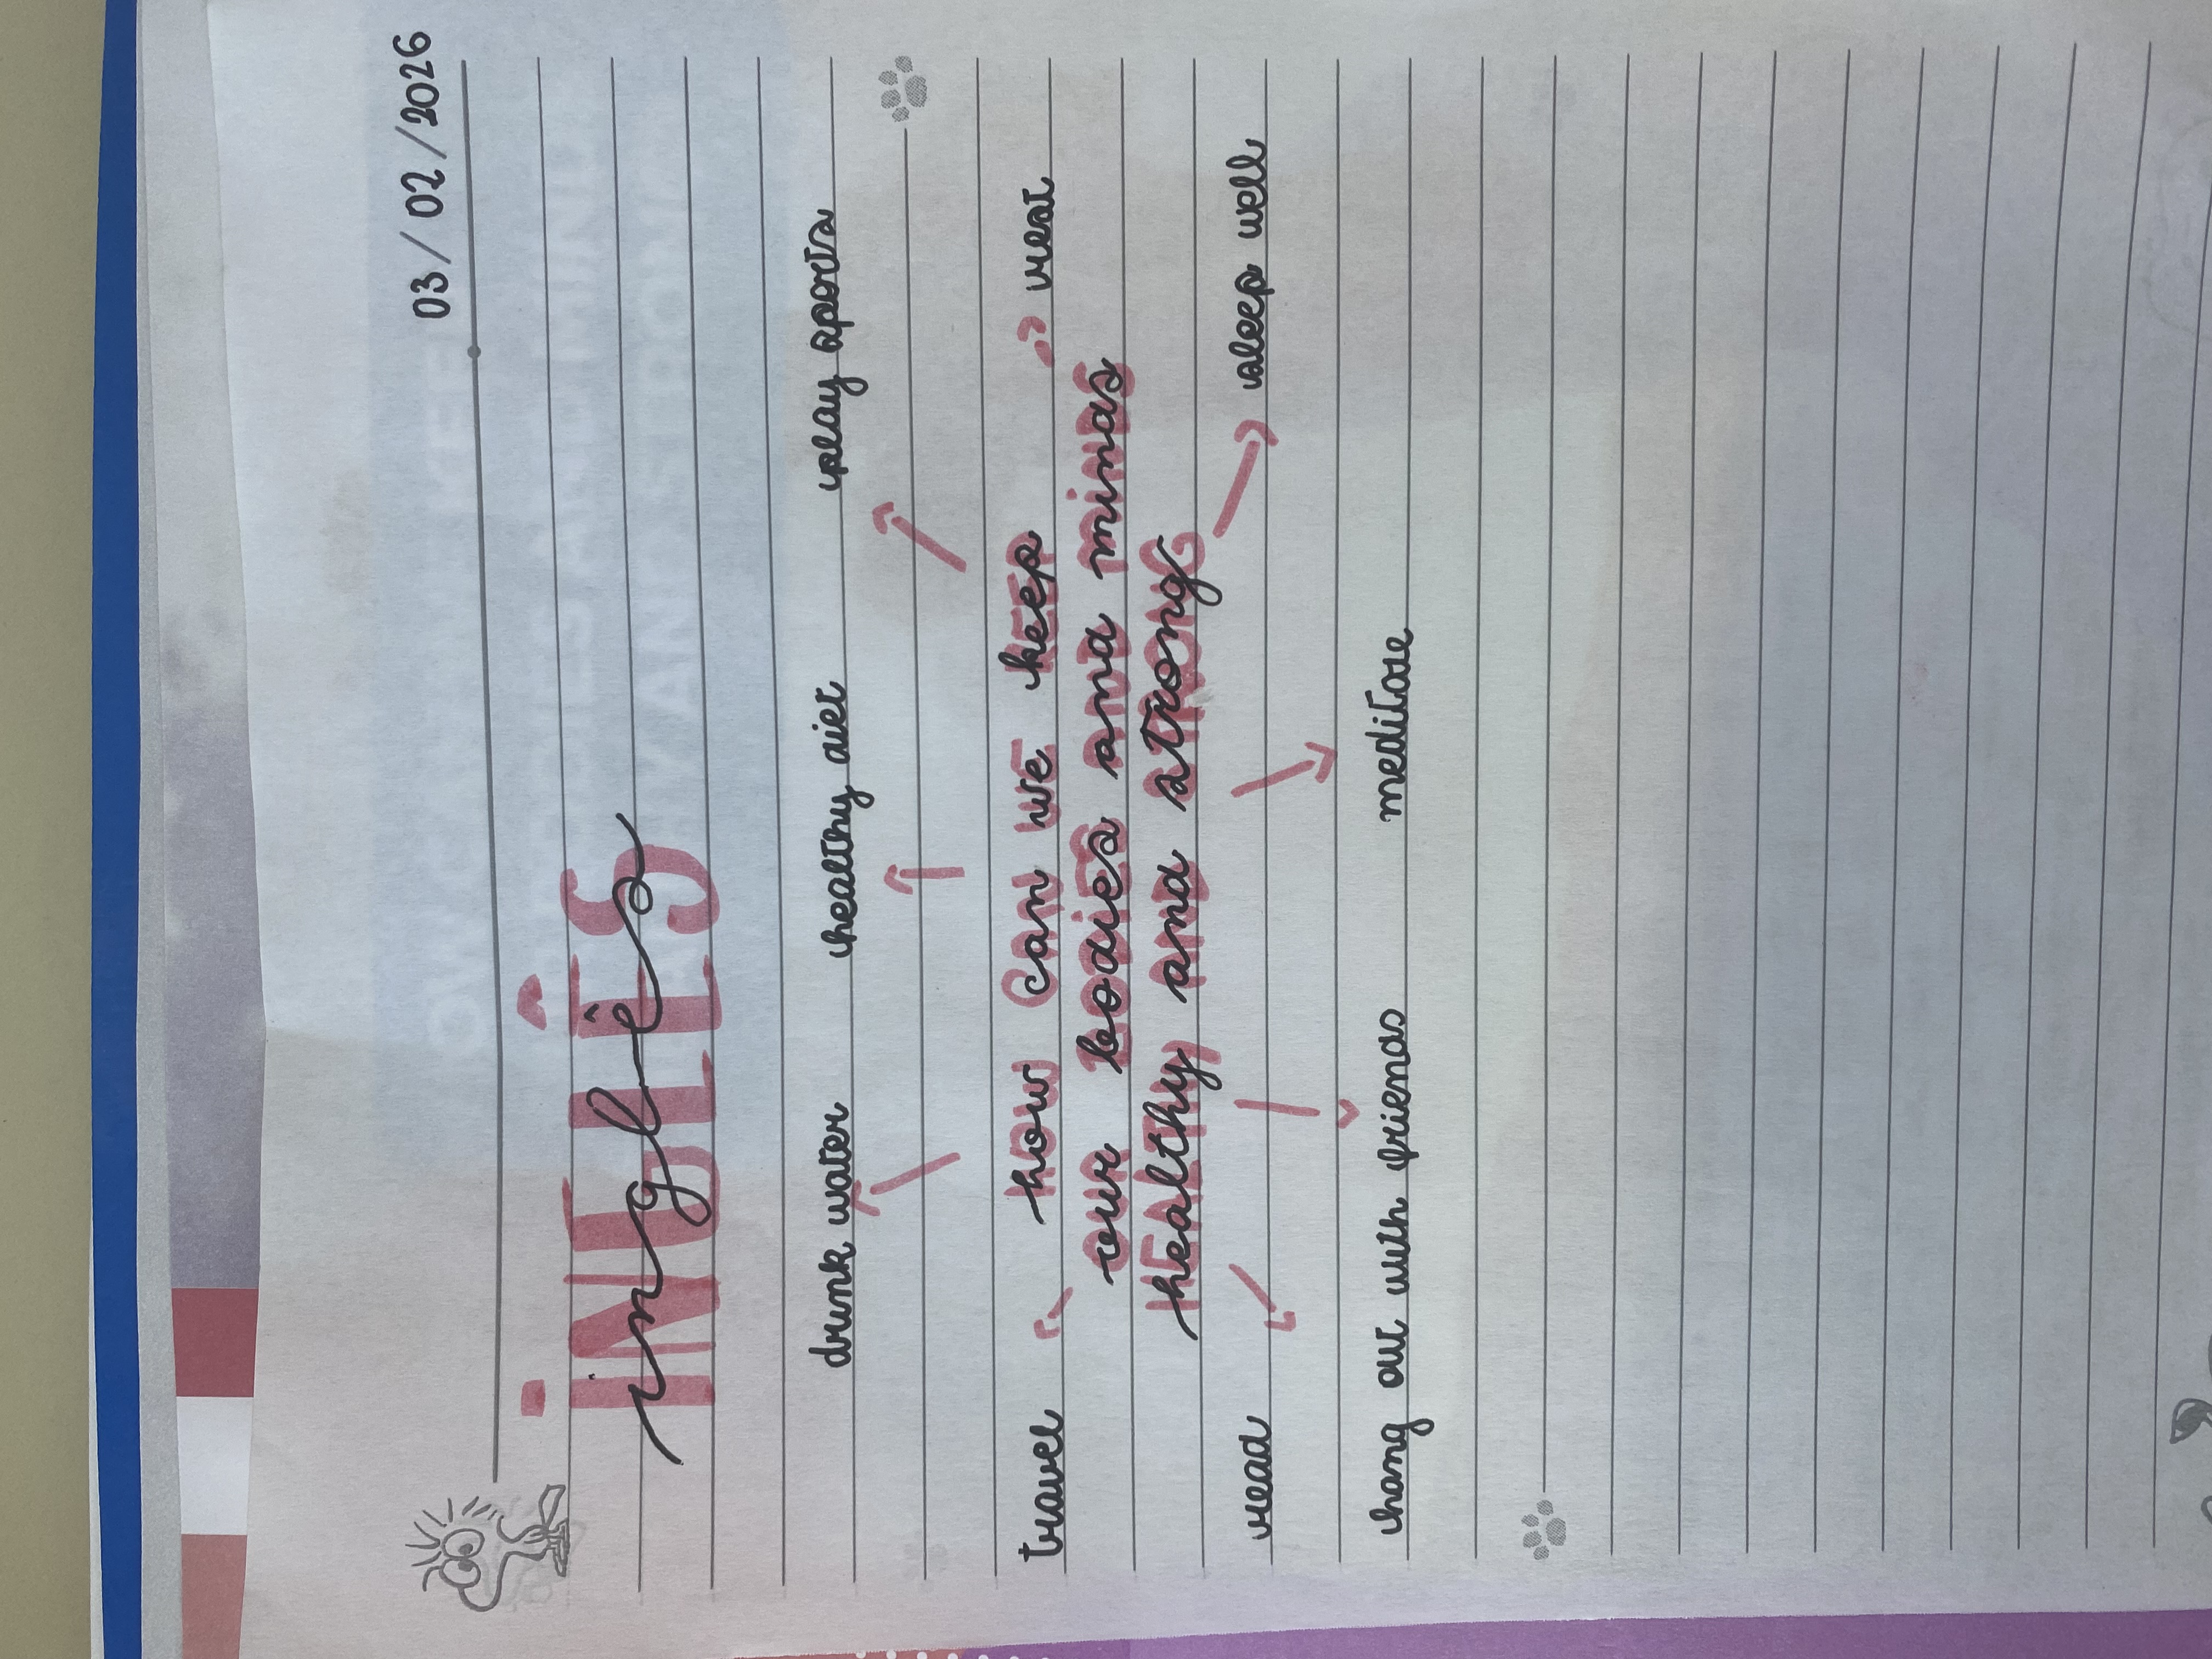 03/02/2026
inglês
drink water healthy diet play sports
travel how can we keep rest
our bodies and minds
healthy and strong
read sleep well
hang out with friends meditate